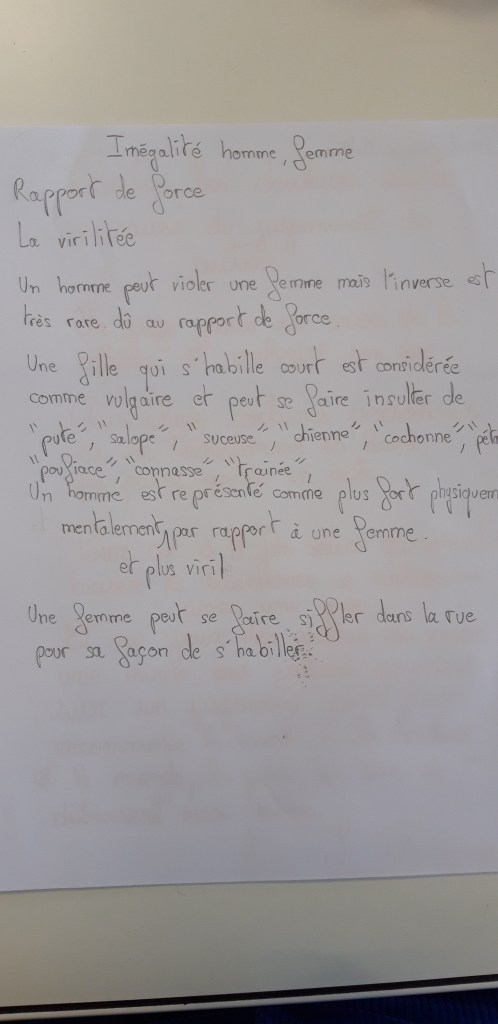 Inégalité homme, femme
Rapport de force
La virilitée
Un homme peut violer une femme mais l'inverse est
très rare dû au rapport de force.
Une fille qui s'habille court est considérée
comme vulgaire et peut se faire insulter de
"pute", "salope", "suceuse", "chienne", "cochonne",
"poufiace", "connasse", "trainée",
Un homme est représenté comme plus fort physiquem
mentalement, par rapport à une femme.
et plus viril
Une femme peut se faire siffler dans la rue
pour sa façon de s'habiller.